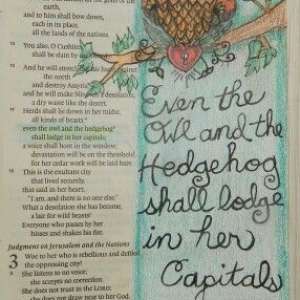 earth,
and to him shall bow down,
each in its place,
all the lands of the nations.
12 You also, O Cushites,
shall be slain by
13 And he will stretch
the north
and destroy Assyria
and he will make Nineveh a desolation,
a dry waste like the desert.
14 Herds shall lie down in her midst,
all kinds of beasts
even the owl and the hedgehog
shall lodge in her capitals;
a voice shall hoot in the window;
devastation will be on the threshold
for her cedar work will be laid bare.
15 This is the exultant city
that lived securely,
that said in her heart,
"I am, and there is no one else."
What a desolation she has become,
a lair for wild beasts!
Everyone who passes by her
hisses and shakes his fist.
Judgment on Jerusalem and the Nations
3 Woe to her who is rebellious and defiled
the oppressing city!
2 She listens to no voice;
she accepts no correction.
She does not trust in the LORD;
she does not draw near to her God.
Even the
Owl and the
Hedgehog
shall lodge
in her
Capitals